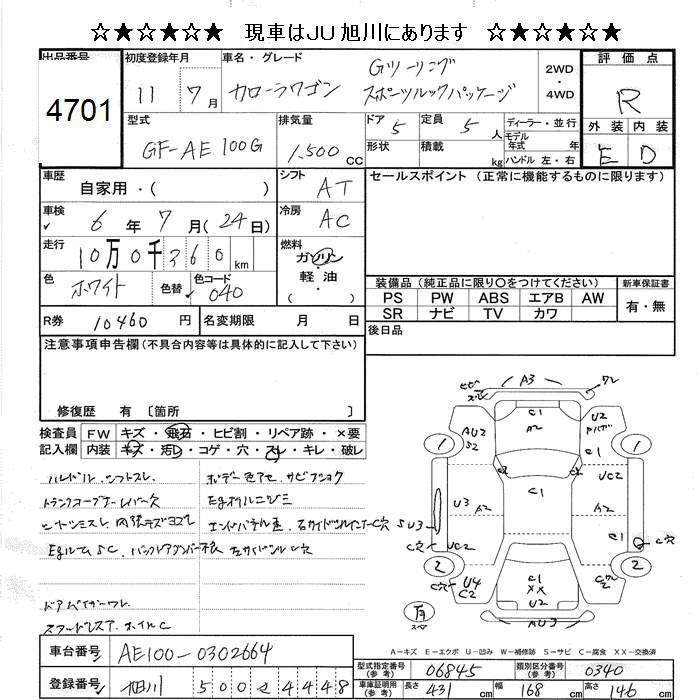 ☆★☆★☆★ 現車はJU旭川にあります ☆★☆★☆★
出品番号
4701
初度登録年月
11 7月
車名・グレード
カローラワゴン
Gツーリング
スポーツルックパッケージ
2WD
・
4WD
評価点
R
外装 内装
E D
型式
GF-AE100G
排気量
1,500 CC
ドア 5
形状
定員 5 人
積載 kg
ディーラー・並行
モデル年式 年
ハンドル 左・右
車歴
自家用・( )
シフト AT
セールスポイント (正常に機能するものに限ります)
車検
6年 7月(24日)
冷房 AC
走行
10万0千360km
燃料
ガソリン
・
軽油
( )
色 ホワイト
色替
色コード 040
装備品 (純正品に限り○をつけてください)
新車保証書
PS PW ABS エアB AW
有・無
SR ナビ TV カワ
R券 10460円
名変期限 月 日
後日品
注意事項申告欄(不具合内容等は具体的に記入して下さい)
修復歴 有 〔箇所 〕
検査員
記入欄
FW キズ・飛石・ヒビ割・リペア跡・×要
内装 キズ・汚レ・コゲ・穴・スレ・キレ・破レ
ハンドル.シフトスレ.
ボデー色アセ.サビアショク
Egオイルニジミ
Egルーム SC.
左サイドシル C穴
ドアバイザーワレ
スタッドレスT.ホイルC
A3
ワレ
C1
A2
AU2
S2
U2
1
1
C1
UC2
U3
A2
A2
SU3
C穴
UC2
C1
C穴
2
2
U4
C2
C穴
C1
XX
U2
AU3
有
スペア
A－キズ E－エクボ U－凹み W－補修跡 S－サビ C－腐食 XX－交換済
車台番号 AE100-0302664
登録番号 旭川 500さ4448
型式指定番号(参考) 06845
類別区分番号(参考) 0340
車庫証明用(参考) 長さ 431cm 幅 168cm 高さ 146cm